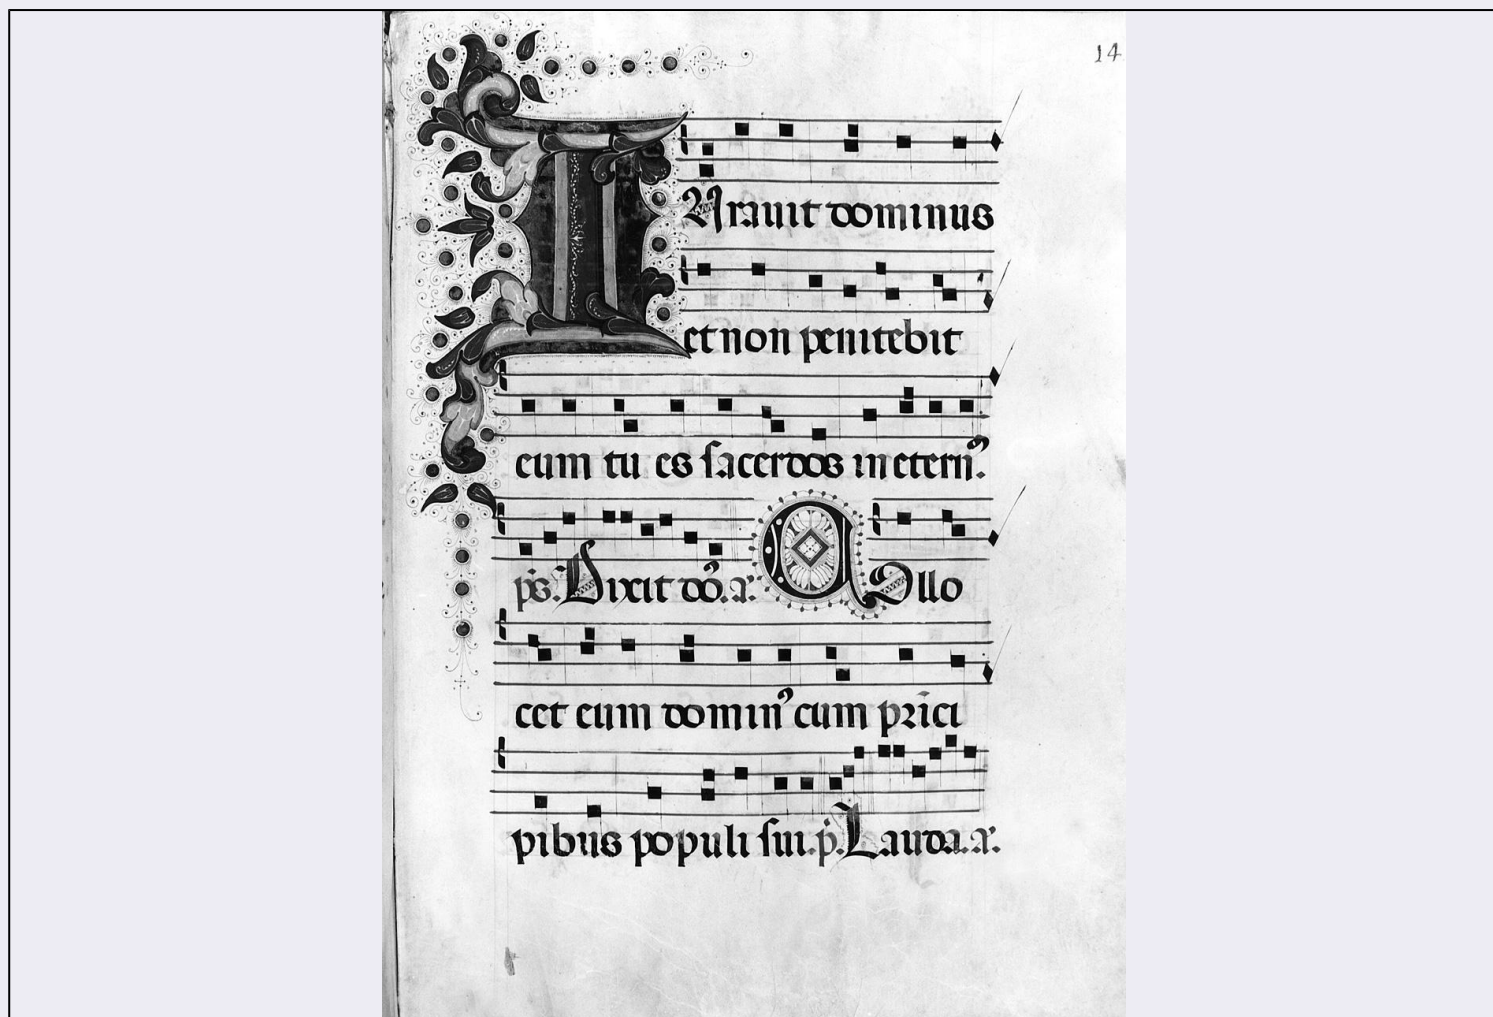 14
IUrauit dominus
et non penitebit
eum tu es sacerdos in etern̉.
ps̄. Dixit dō. a. COllo
cet eum domin̉ cum prīci
pibus populi sui. p̄. Lauda. a.